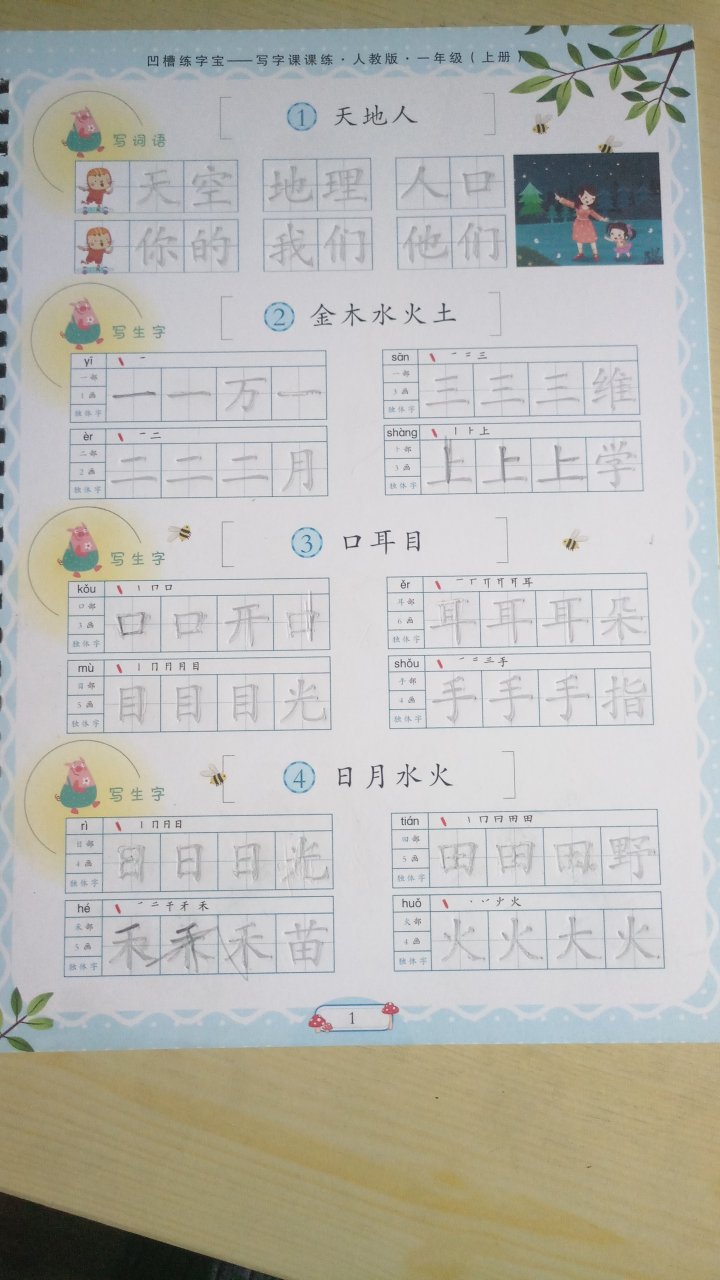 凹槽练字宝——写字课课练·人教版·一年级（上册）
1 天地人
写词语
天空 地理 人口
你的 我们 他们
2 金木水火土
写生字
yī 一部 1画 独体字 一
一 一 万 一
sān 一部 3画 独体字 一 二 三
三 三 三 维
èr 二部 2画 独体字 一 二
二 二 二 月
shàng 卜部 3画 独体字 丨 卜 上
上 上 上 学
3 口耳目
写生字
kǒu 口部 3画 独体字 丨 冂 口
口 口 开 口
ěr 耳部 6画 独体字 耳
耳 耳 耳 朵
mù 目部 5画 独体字 丨 冂 月 月 目
目 目 目 光
shǒu 手部 4画 独体字 一 二 三 手
手 手 手 指
4 日月水火
写生字
rì 日部 4画 独体字 丨 冂 月 日
日 日 日 光
tián 田部 5画 独体字 丨 冂 曰 田 田
田 田 田 野
hé 禾部 5画 独体字 一 二 千 禾 禾
禾 禾 禾 苗
huǒ 火部 4画 独体字 火
火 火 大 火
1